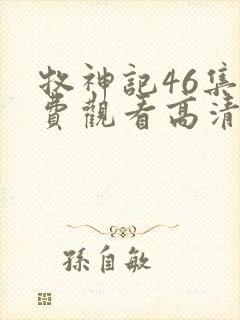 牧神記46集
費觀看高清
孫自敏